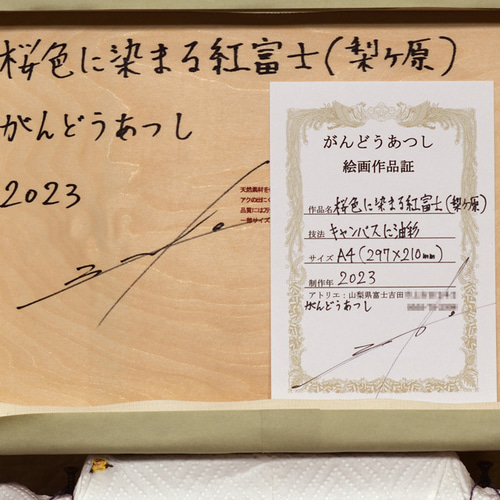 桜色に染まる紅富士(梨ヶ原)
がんどうあつし
2023
天然素材を
アクの出にく
品質には万
一部サイズ
がんどうあつし
絵画作品証
作品名 桜色に染まる紅富士(梨ヶ原)
技法 キャンバスに油彩
サイズ A4(297×210mm)
制作年 2023
アトリエ:山梨県富士吉田
がんどうあつし